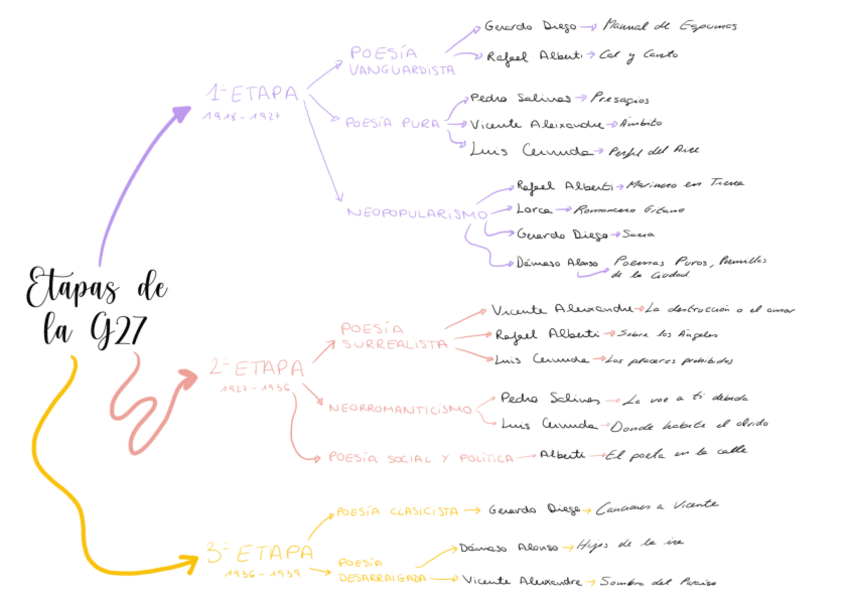 Etapas de
la G27
1ª ETAPA
1918 - 1927
POESÍA
VANGUARDISTA
Gerardo Diego → Manual de Espumas
Rafael Alberti → Cal y Canto
POESÍA PURA
Pedro Salinas → Presagios
Vicente Aleixandre → Ámbito
Luis Cernuda → Perfil del Aire
NEOPOPULARISMO
Rafael Alberti → Marinero en Tierra
Lorca → Romancero Gitano
Gerardo Diego → Soria
Dámaso Alonso → Poemas Puros, Poemillas
de la Ciudad
2ª ETAPA
1927 - 1936
POESÍA
SURREALISTA
Vicente Aleixandre → La destrucción o el amor
Rafael Alberti → Sobre los Ángeles
Luis Cernuda → Los placeres prohibidos
NEORROMANTICISMO
Pedro Salinas → La voz a ti debida
Luis Cernuda → Donde habite el olvido
POESÍA SOCIAL Y POLÍTICA → Alberti → El poeta en la calle
3ª ETAPA
1936 - 1939
POESÍA CLASICISTA → Gerardo Diego → Canciones a Vicente
POESÍA
DESARRAIGADA
Dámaso Alonso → Hijos de la ira
Vicente Aleixandre → Sombra del Paraíso